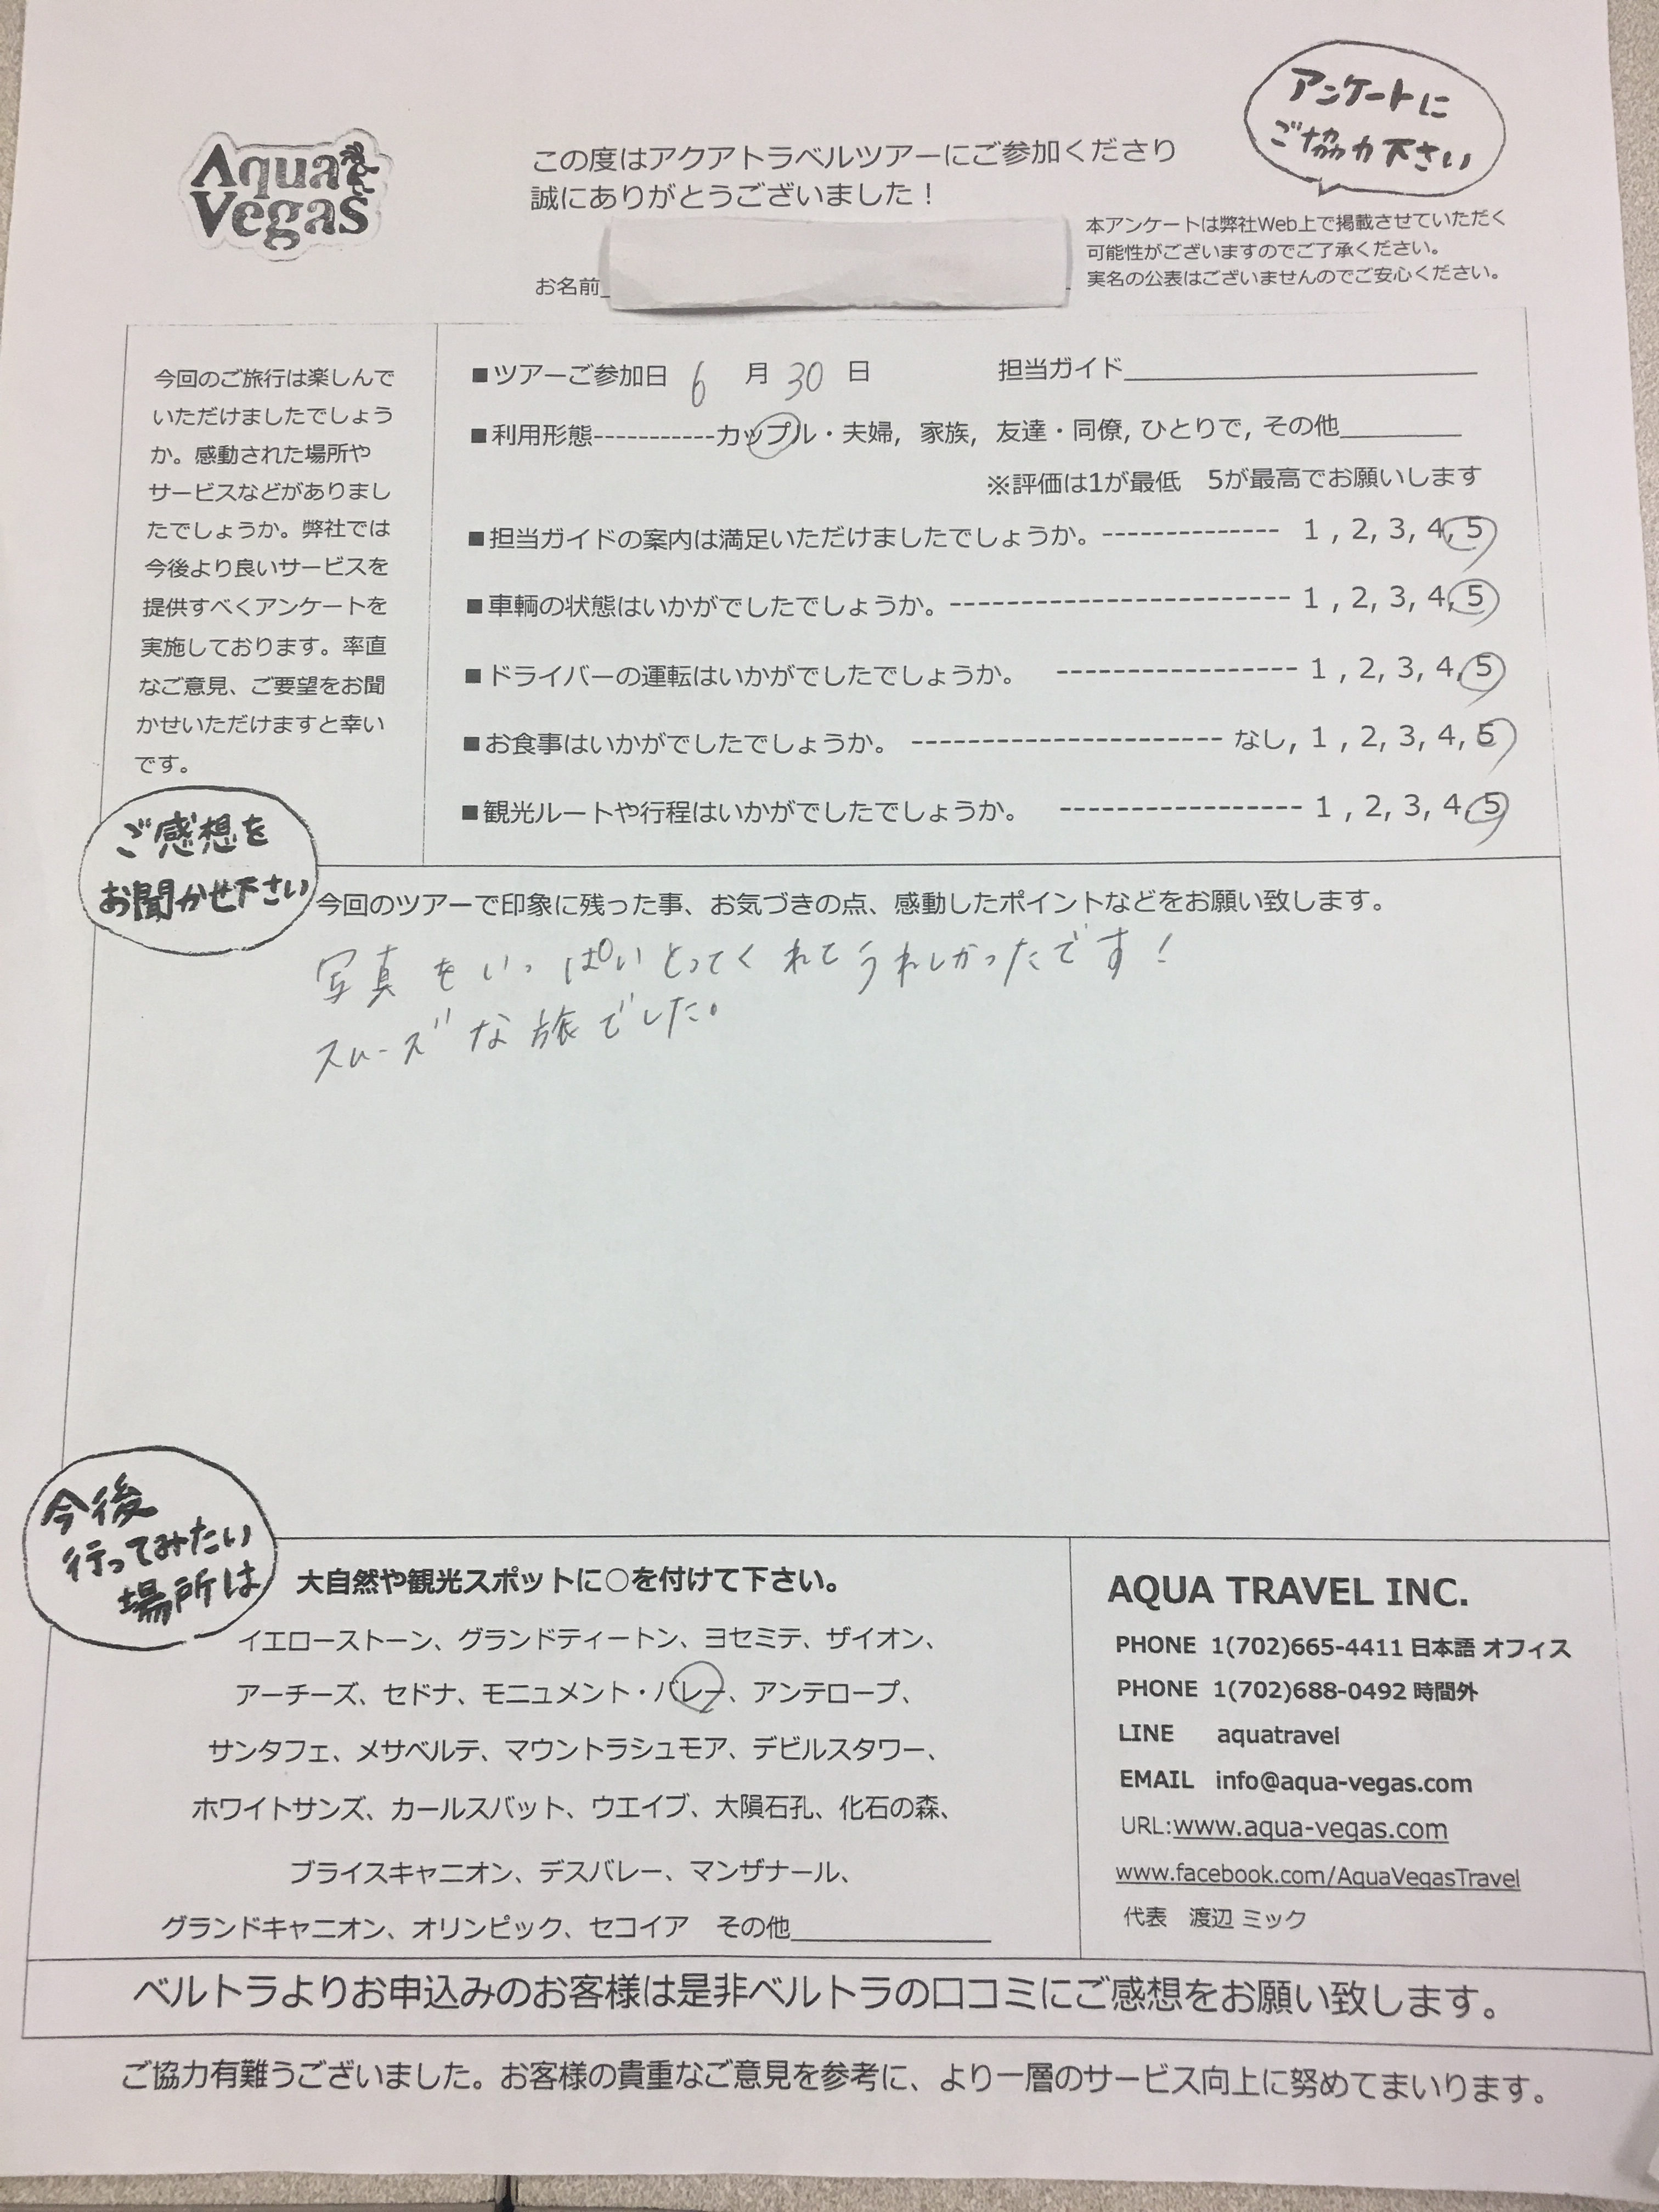 アンケートに
ご協力下さい
Aqua
Vegas
この度はアクアトラベルツアーにご参加くださり
誠にありがとうございました！
お名前
本アンケートは弊社Web上で掲載させていただく
可能性がございますのでご了承ください。
実名の公表はございませんのでご安心ください。
今回のご旅行は楽しんで
いただけましたでしょう
か。感動された場所や
サービスなどがありまし
たでしょうか。弊社では
今後より良いサービスを
提供すべくアンケートを
実施しております。率直
なご意見、ご要望をお聞
かせいただけますと幸い
です。
■ツアーご参加日 6 月 30 日 担当ガイド
■利用形態-----------カップル・夫婦, 家族, 友達・同僚, ひとりで, その他
※評価は1が最低 5が最高でお願いします
■担当ガイドの案内は満足いただけましたでしょうか。------------- 1 , 2, 3, 4, 5
■車輌の状態はいかがでしたでしょうか。------------------------- 1 , 2, 3, 4, 5
■ドライバーの運転はいかがでしたでしょうか。 ----------------- 1 , 2, 3, 4, 5
■お食事はいかがでしたでしょうか。 ---------------------- なし, 1 , 2, 3, 4, 5
■観光ルートや行程はいかがでしたでしょうか。 ----------------- 1 , 2, 3, 4, 5
ご感想を
お聞かせ下さい
今回のツアーで印象に残った事、お気づきの点、感動したポイントなどをお願い致します。
写真をいっぱいとってくれてうれしかったです！
スムーズな旅でした。
今後
行ってみたい
場所は
大自然や観光スポットに○を付けて下さい。
イエローストーン、グランドティートン、ヨセミテ、ザイオン、
アーチーズ、セドナ、モニュメント・バレー、アンテロープ、
サンタフェ、メサベルテ、マウントラシュモア、デビルスタワー、
ホワイトサンズ、カールスバット、ウエイブ、大隕石孔、化石の森、
ブライスキャニオン、デスバレー、マンザナール、
グランドキャニオン、オリンピック、セコイア その他
AQUA TRAVEL INC.
PHONE 1(702)665-4411 日本語 オフィス
PHONE 1(702)688-0492 時間外
LINE aquatravel
EMAIL info@aqua-vegas.com
URL:www.aqua-vegas.com
www.facebook.com/AquaVegasTravel
代表 渡辺 ミック
ベルトラよりお申込みのお客様は是非ベルトラの口コミにご感想をお願い致します。
ご協力有難うございました。お客様の貴重なご意見を参考に、より一層のサービス向上に努めてまいります。